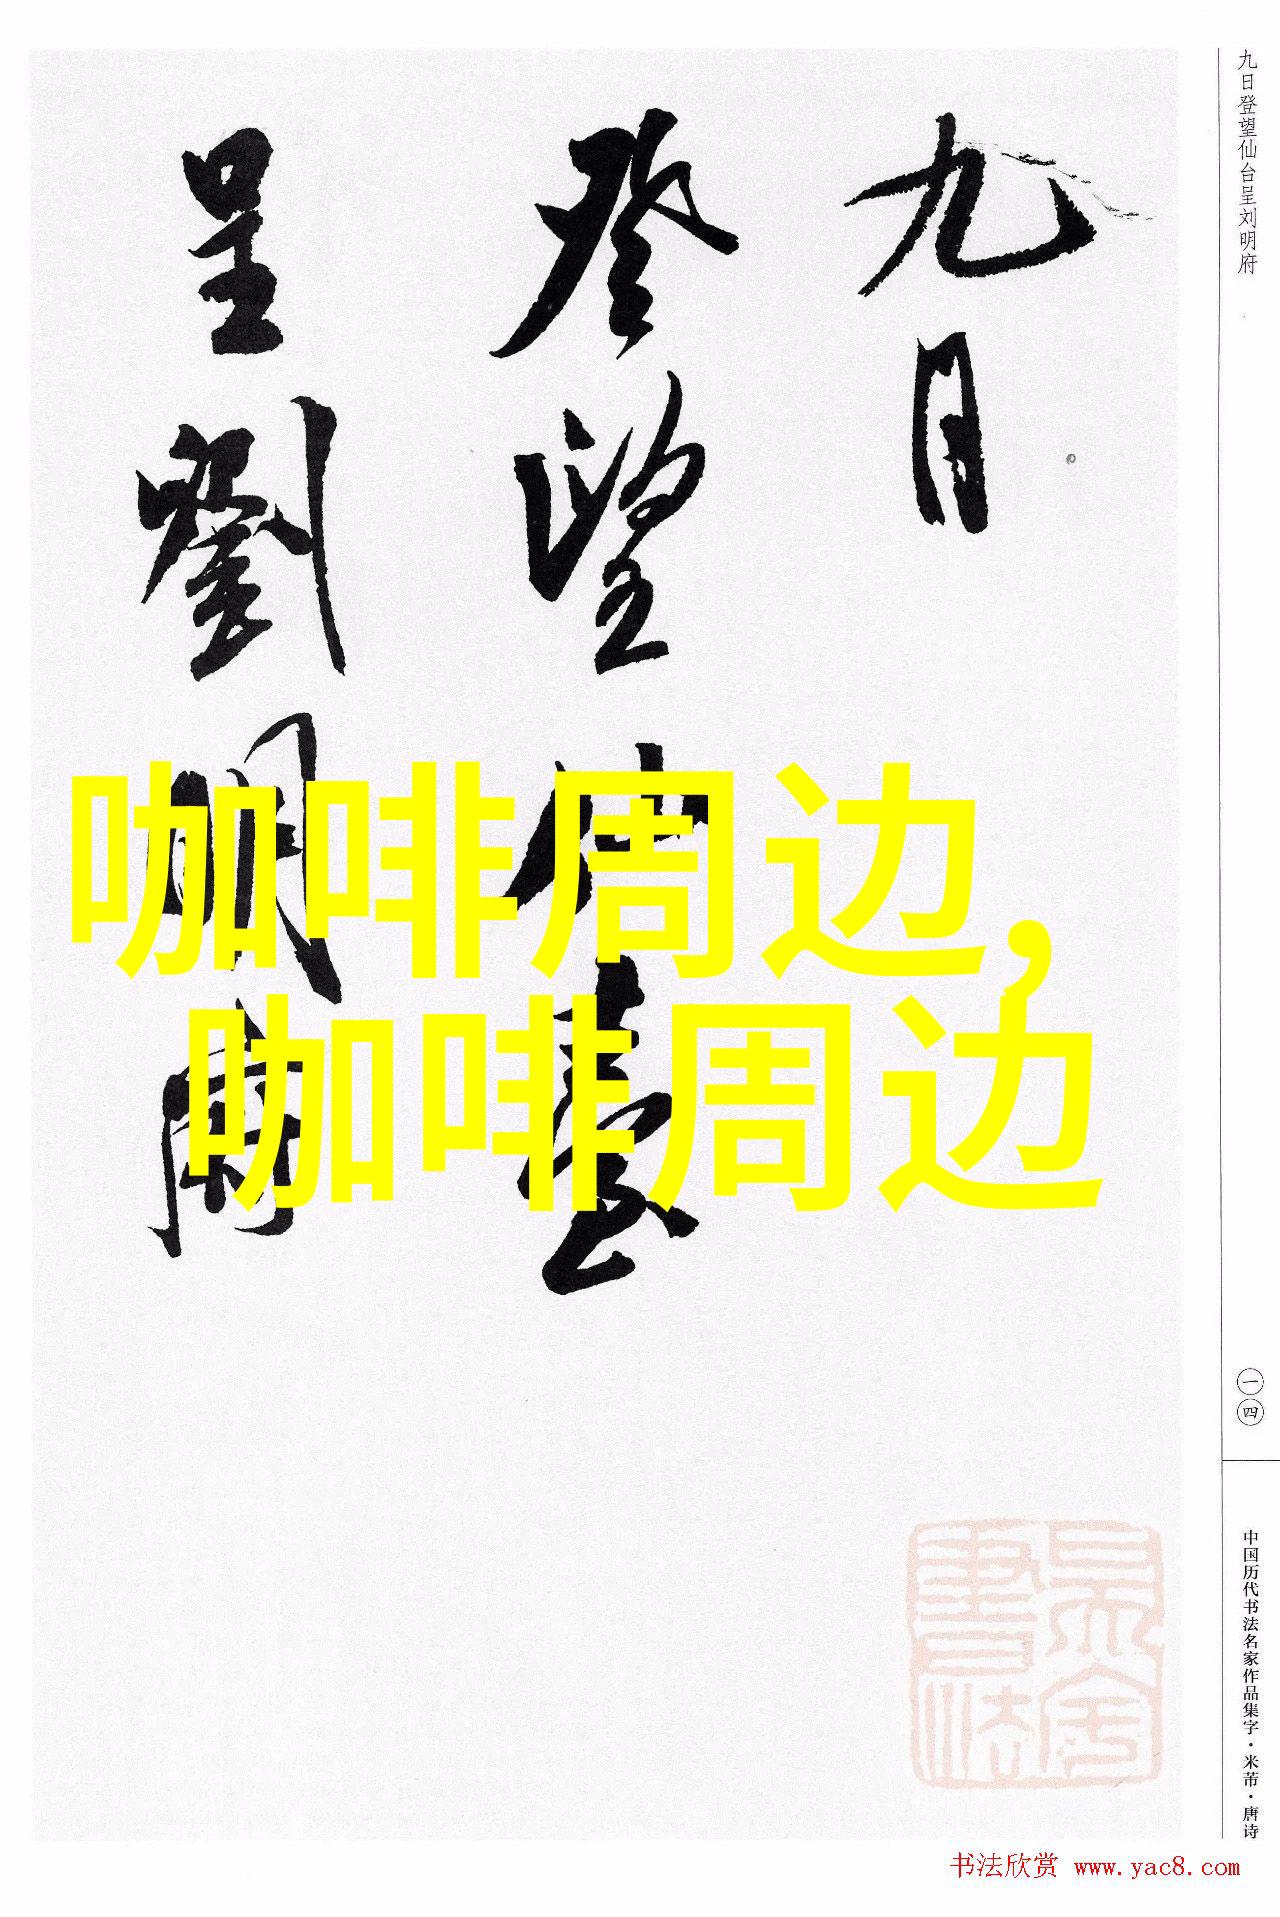 九日
登望仙臺
呈劉明府
咖啡周边,
咖啡周边
九日登望仙台呈刘明府
一四
中国历代书法名家作品集字·米芾·唐诗
书法欣赏 www.yac8.com